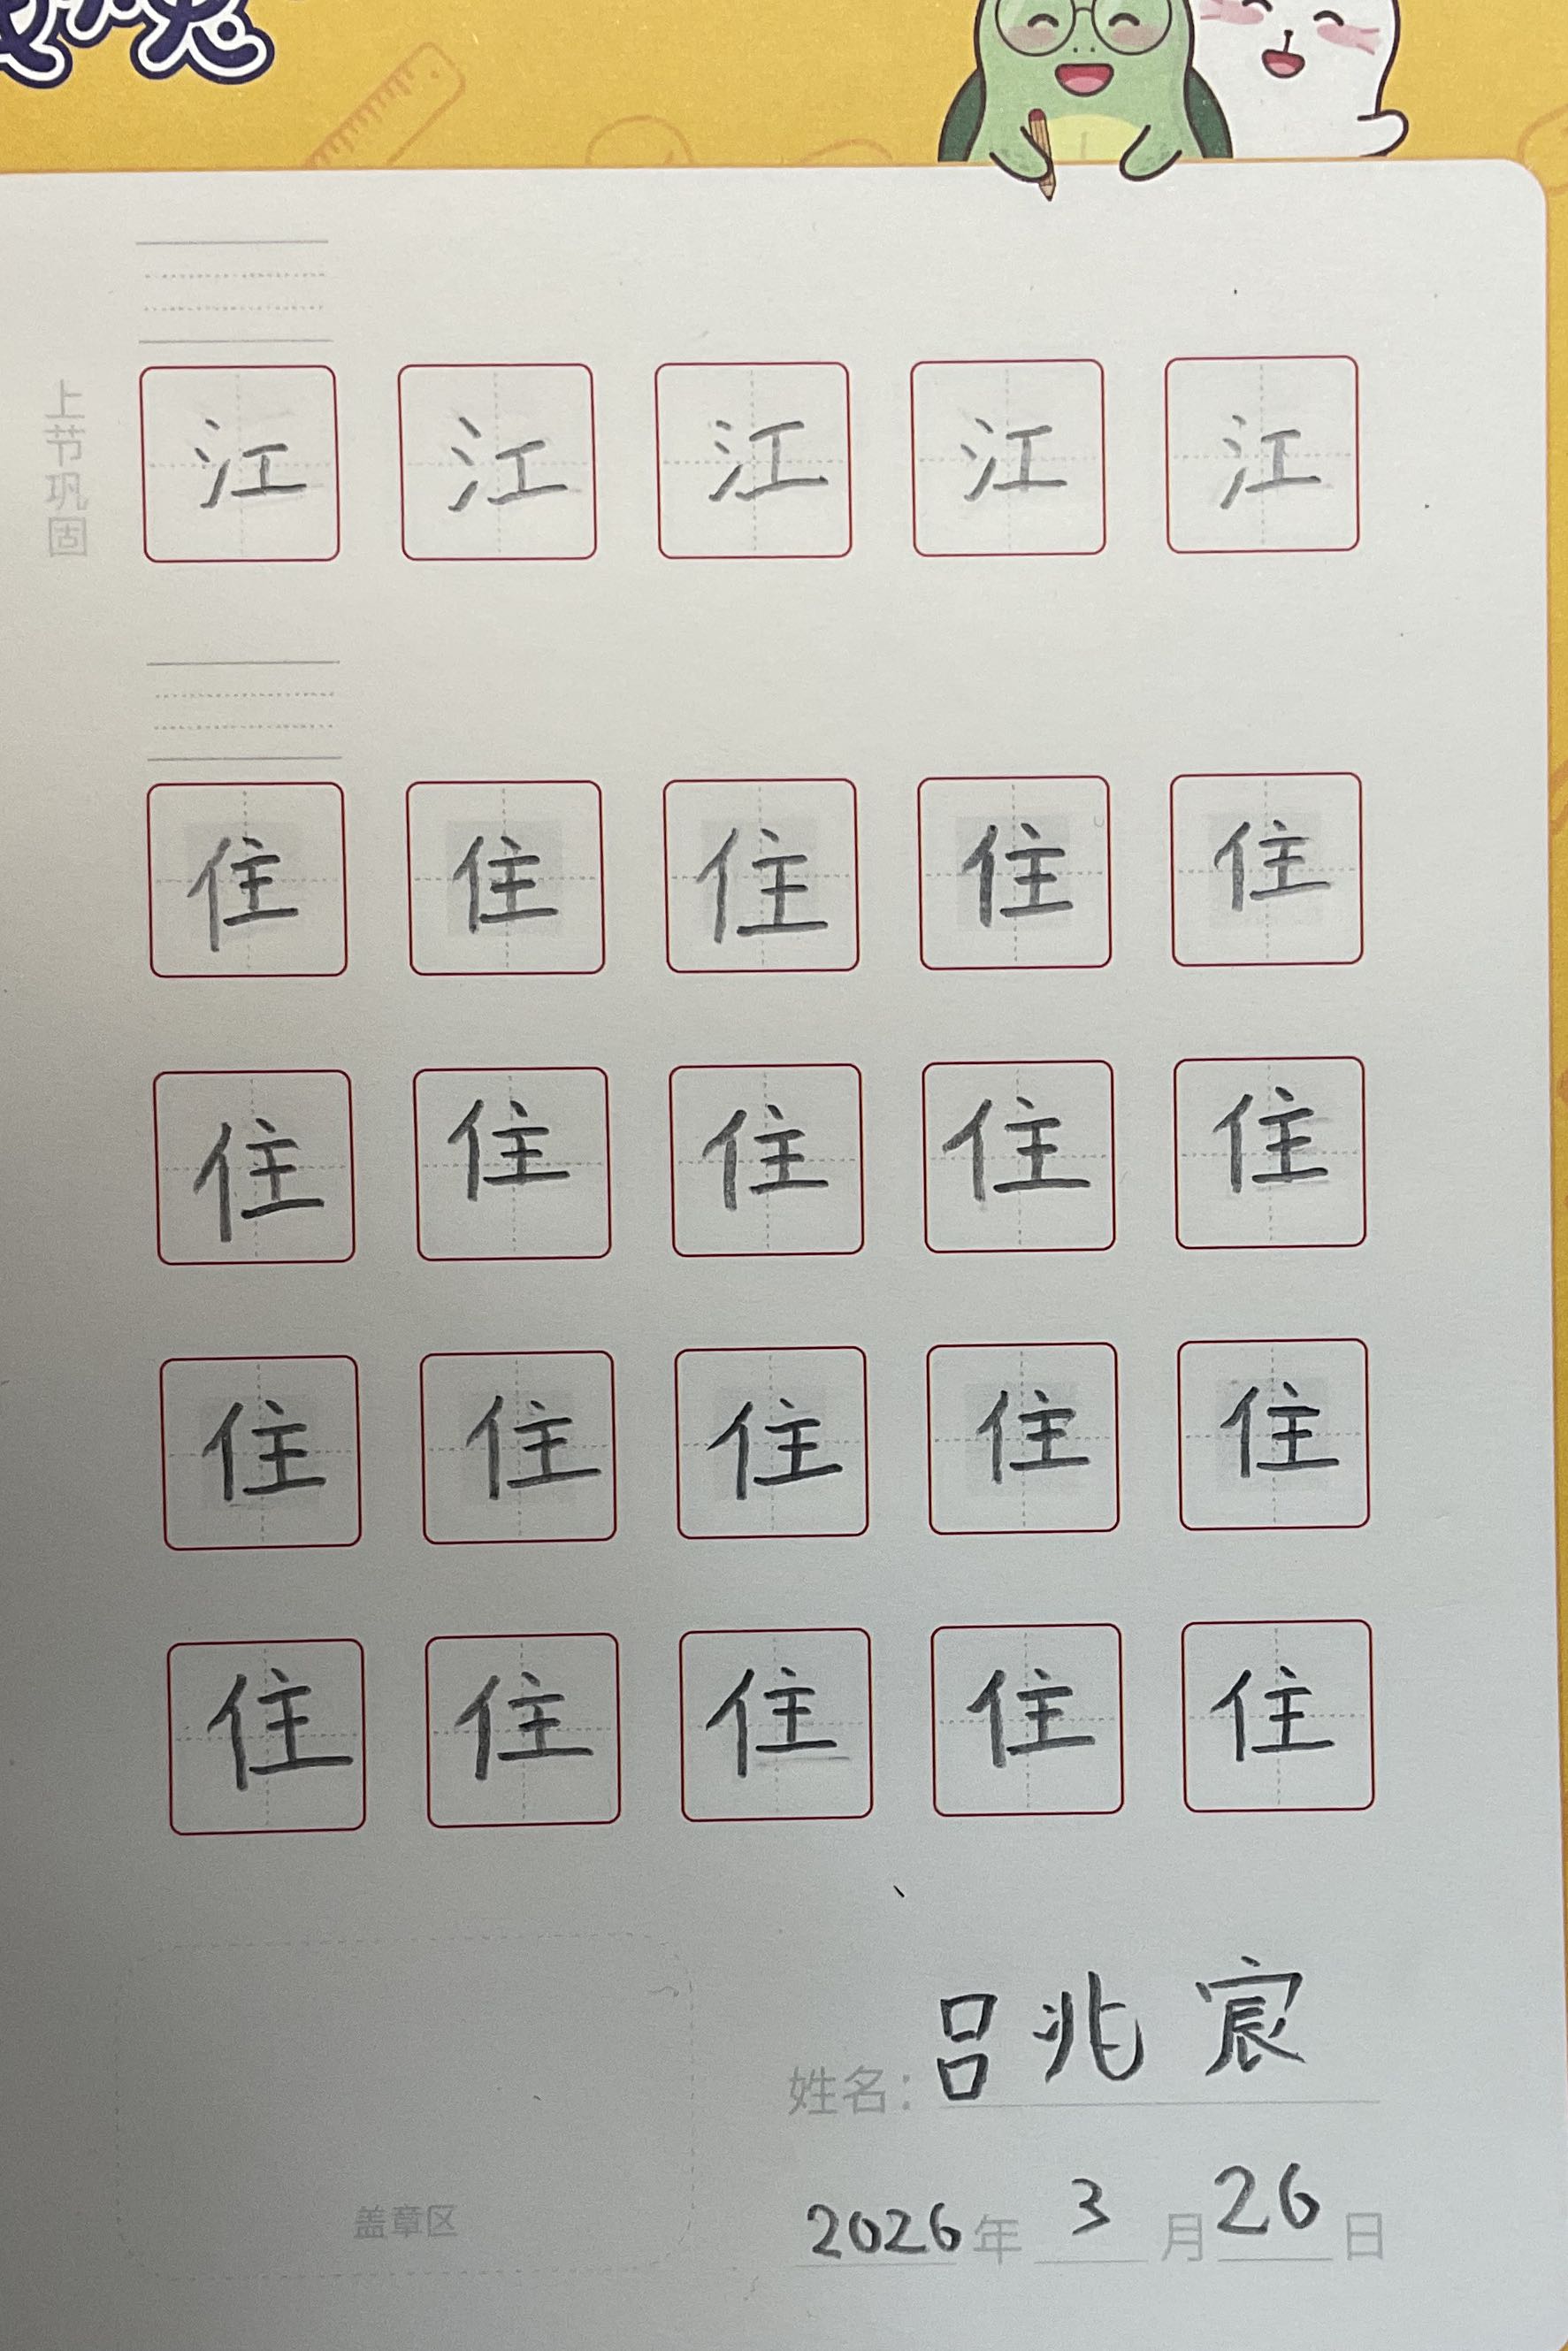 上节巩固
江 江 江 江 江
住 住 住 住 住
住 住 住 住 住
住 住 住 住 住
住 住 住 住 住
姓名：吕兆宸
盖章区
2026年3月26日